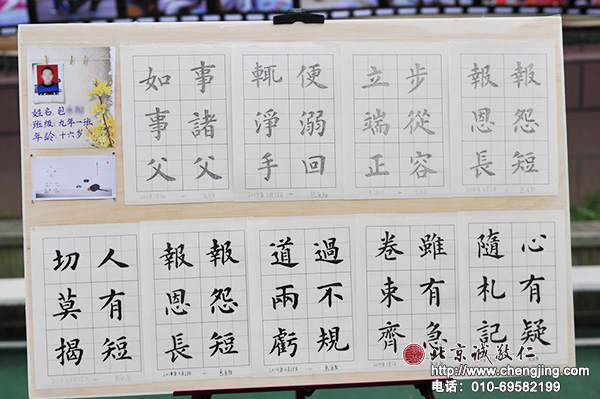 姓名:包
班级:九年一班
年龄:十六岁
事諸父
如事父
便溺回
輒淨手
步從容
立端正
報怨短
報恩長
人有短
切莫揭
報怨短
報恩長
過不規
道兩虧
雖有急
卷束齊
心有疑
隨札記
北京诚敬仁
http://www.chengjing.com
电话：010-69582199